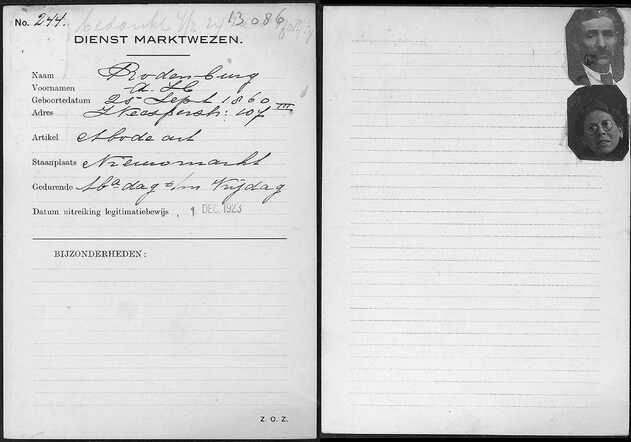 No. 244. 13086
DIENST MARKTWEZEN.
Naam Rodenburg
Voornamen A. H
Geboortedatum 25 Sept 1860
Adres Weesperstr: 107 III
Artikel Mode art
Staanplaats Nieuwmarkt
Gedurende Ma dag t/m Vrijdag
Datum uitreiking legitimatiebewijs 1 DEC. 1923
BIJZONDERHEDEN:
Z. O. Z.